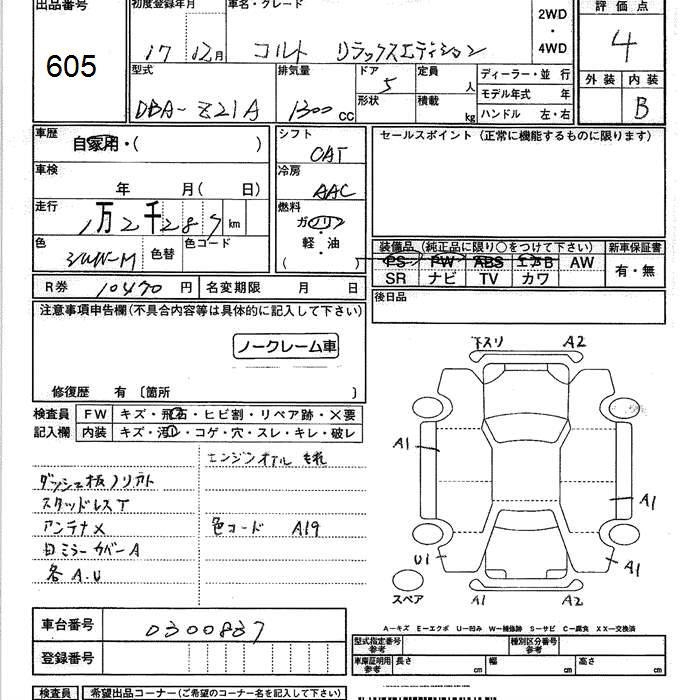 出品番号
605
初度登録年月
17 12月
車名・グレード
コルト Dラックスエディション
2WD
・
4WD
評価点
4
外装 内装
B
型式
DBA-Z21A
排気量
1300 CC
ドア
5
形状
定員
人
積載
kg
ディーラー・並行
モデル年式 年
ハンドル 左・右
車歴
自家用・( )
シフト
AT
セールスポイント (正常に機能するものに限ります)
車検
年 月( 日)
冷房
AAC
走行
1万2千287km
燃料
ガソリン
・
軽・油
( )
色
色替
色コード
装備品 (純正品に限り○をつけて下さい)
PS PW ABS エアB AW
SR ナビ TV カワ
新車保証書
有・無
R券 10470 円
名変期限 月 日
後日品
注意事項申告欄(不具合内容等は具体的に記入して下さい)
ノークレーム車
修復歴 有 〔箇所 〕
検査員
記入欄
FW キズ・飛石・ヒビ割・リペア跡・×要
内装 キズ・汚レ・コゲ・穴・スレ・キレ・破レ
エンジンオイルもれ
スタッドレスT
アンテナ×
色コード A19
目ミラーカバーA
各A.U
下スリ A2
A1
A1
U1
A1
スペア
A1 A2
A-キズ E-エクボ U-凹み W-補修跡 S-サビ C-腐食 XX-交換済
車台番号
0300837
登録番号
型式指定番号
参考
種別区分番号
参考
車庫証明用
参考
長さ cm 幅 cm 高さ cm
検査員
希望出品コーナー(ご希望のコーナー名を記入して下さい)